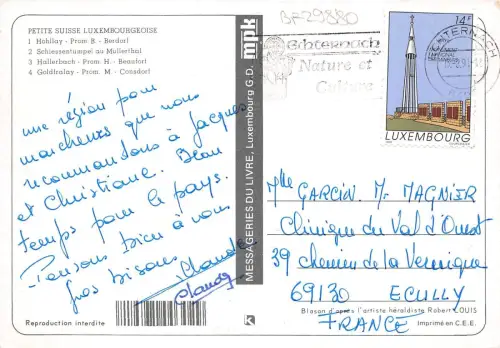 BF29880
PETITE SUISSE LUXEMBOURGEOISE
1 Hohllay - Prom B. - Berdorf
2 Schiessentumpel au Mullerthal
3 Hallerbach - Prom H. - Beaufort
4 Goldfralay - Prom. M. - Consdorf
une région pour
marcheurs que nous
recommandons à Jacques
et Christiane. Beau
temps pour le pays.
Pensons bien à vous
gros bisous
Claude
Reproduction interdite
MESSAGERIES DU LIVRE, Luxembourg G. D. mpk
Echternach
Nature et
Culture
ECHTERNACH
14F
MONUMENT
NATIONAL
LUXEMBOURG
Mlle GARCIN. M- MAGNIER
Clinique du Val d'Ouest
39 chemin de la Vernique
69130 ECULLY
FRANCE
Blason d'après l'artiste héraldiste Robert LOUIS
Imprimé en C.E.E.
K